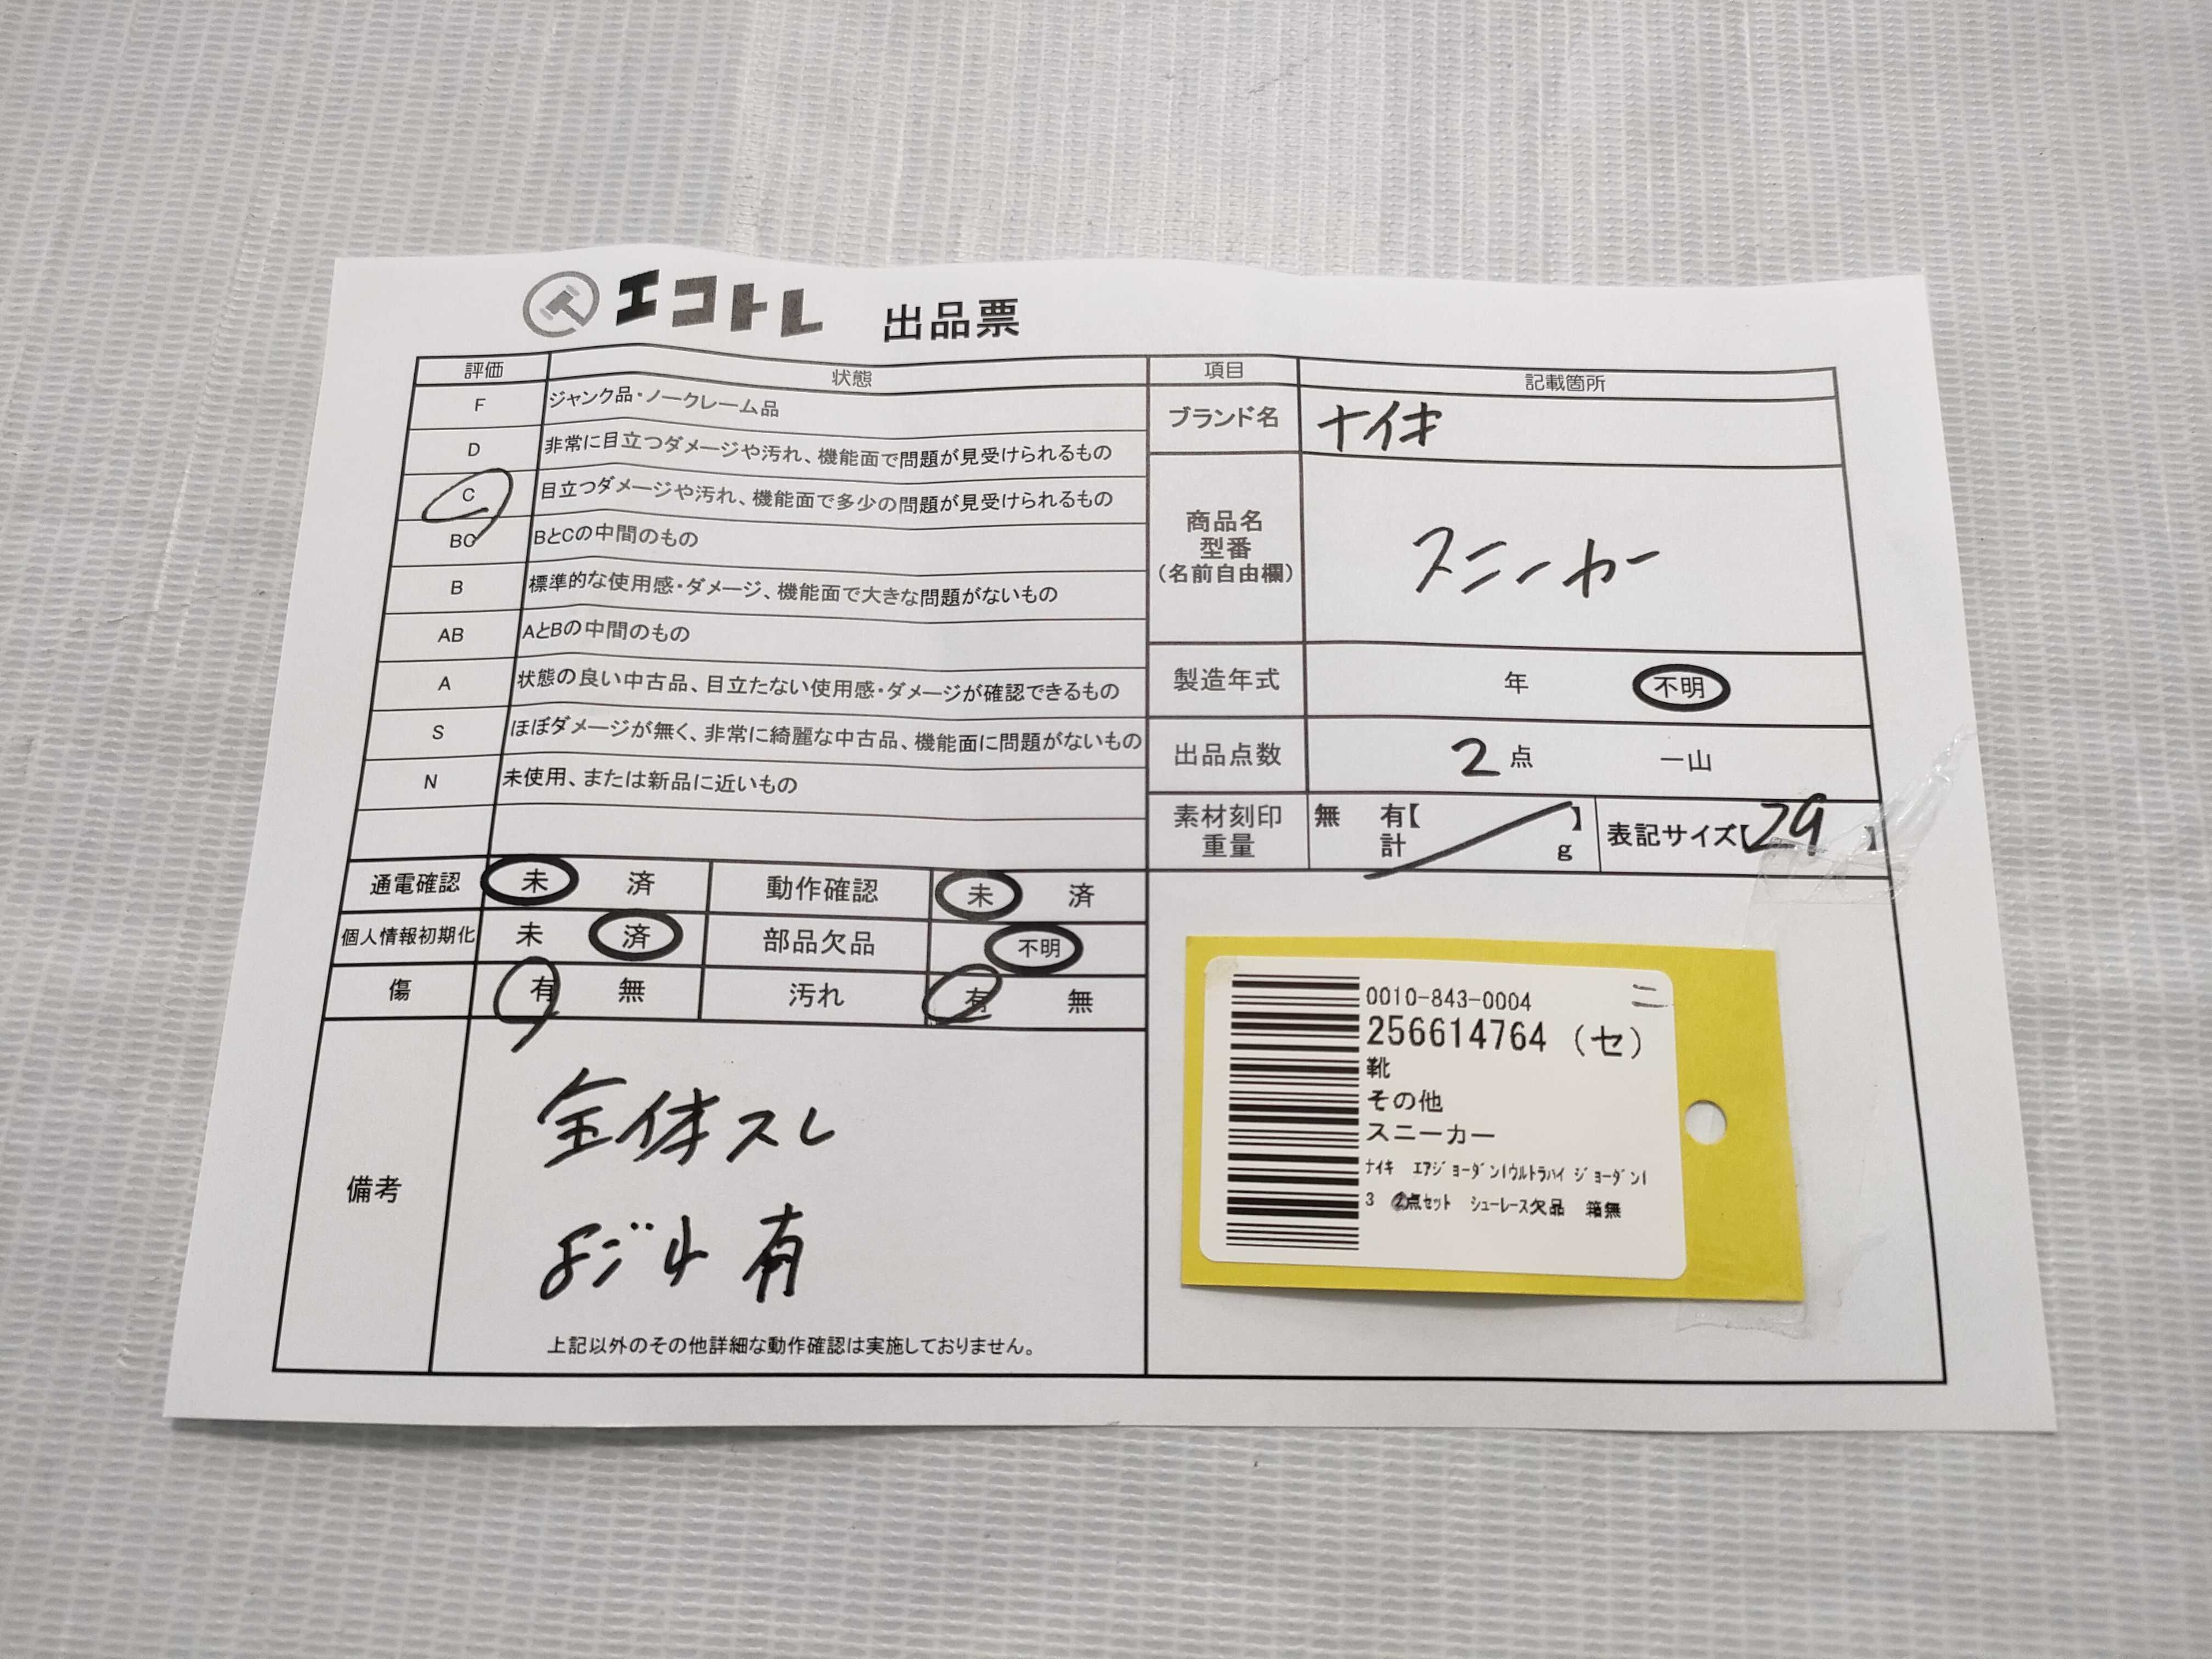 エコトレ 出品票
評価 状態
F ジャンク品・ノークレーム品
D 非常に目立つダメージや汚れ、機能面で問題が見受けられるもの
C 目立つダメージや汚れ、機能面で多少の問題が見受けられるもの
BC BとCの中間のもの
B 標準的な使用感・ダメージ、機能面で大きな問題がないもの
AB AとBの中間のもの
A 状態の良い中古品、目立たない使用感・ダメージが確認できるもの
S ほぼダメージが無く、非常に綺麗な中古品、機能面に問題がないもの
N 未使用、または新品に近いもの
通電確認 未 済 動作確認 未 済
個人情報初期化 未 済 部品欠品 不明
傷 有 無 汚れ 有 無
備考
全体スレ
ヨゴレ 有
上記以外のその他詳細な動作確認は実施しておりません。
項目 記載箇所
ブランド名 ナイキ
商品名
型番
(名前自由欄)
スニーカー
製造年式 年 不明
出品点数 2点 一山
素材刻印 無 有【 】
重量 計 g
表記サイズ【29】
0010-843-0004 ニ
256614764 (セ)
靴
その他
スニーカー
ﾅｲｷ ｴｱｼﾞｮｰﾀﾞﾝ1ｳﾙﾄﾗﾊｲ ｼﾞｮｰﾀﾞﾝ1
3 2点ｾｯﾄ ｼｭｰﾚｰｽ欠品 箱無